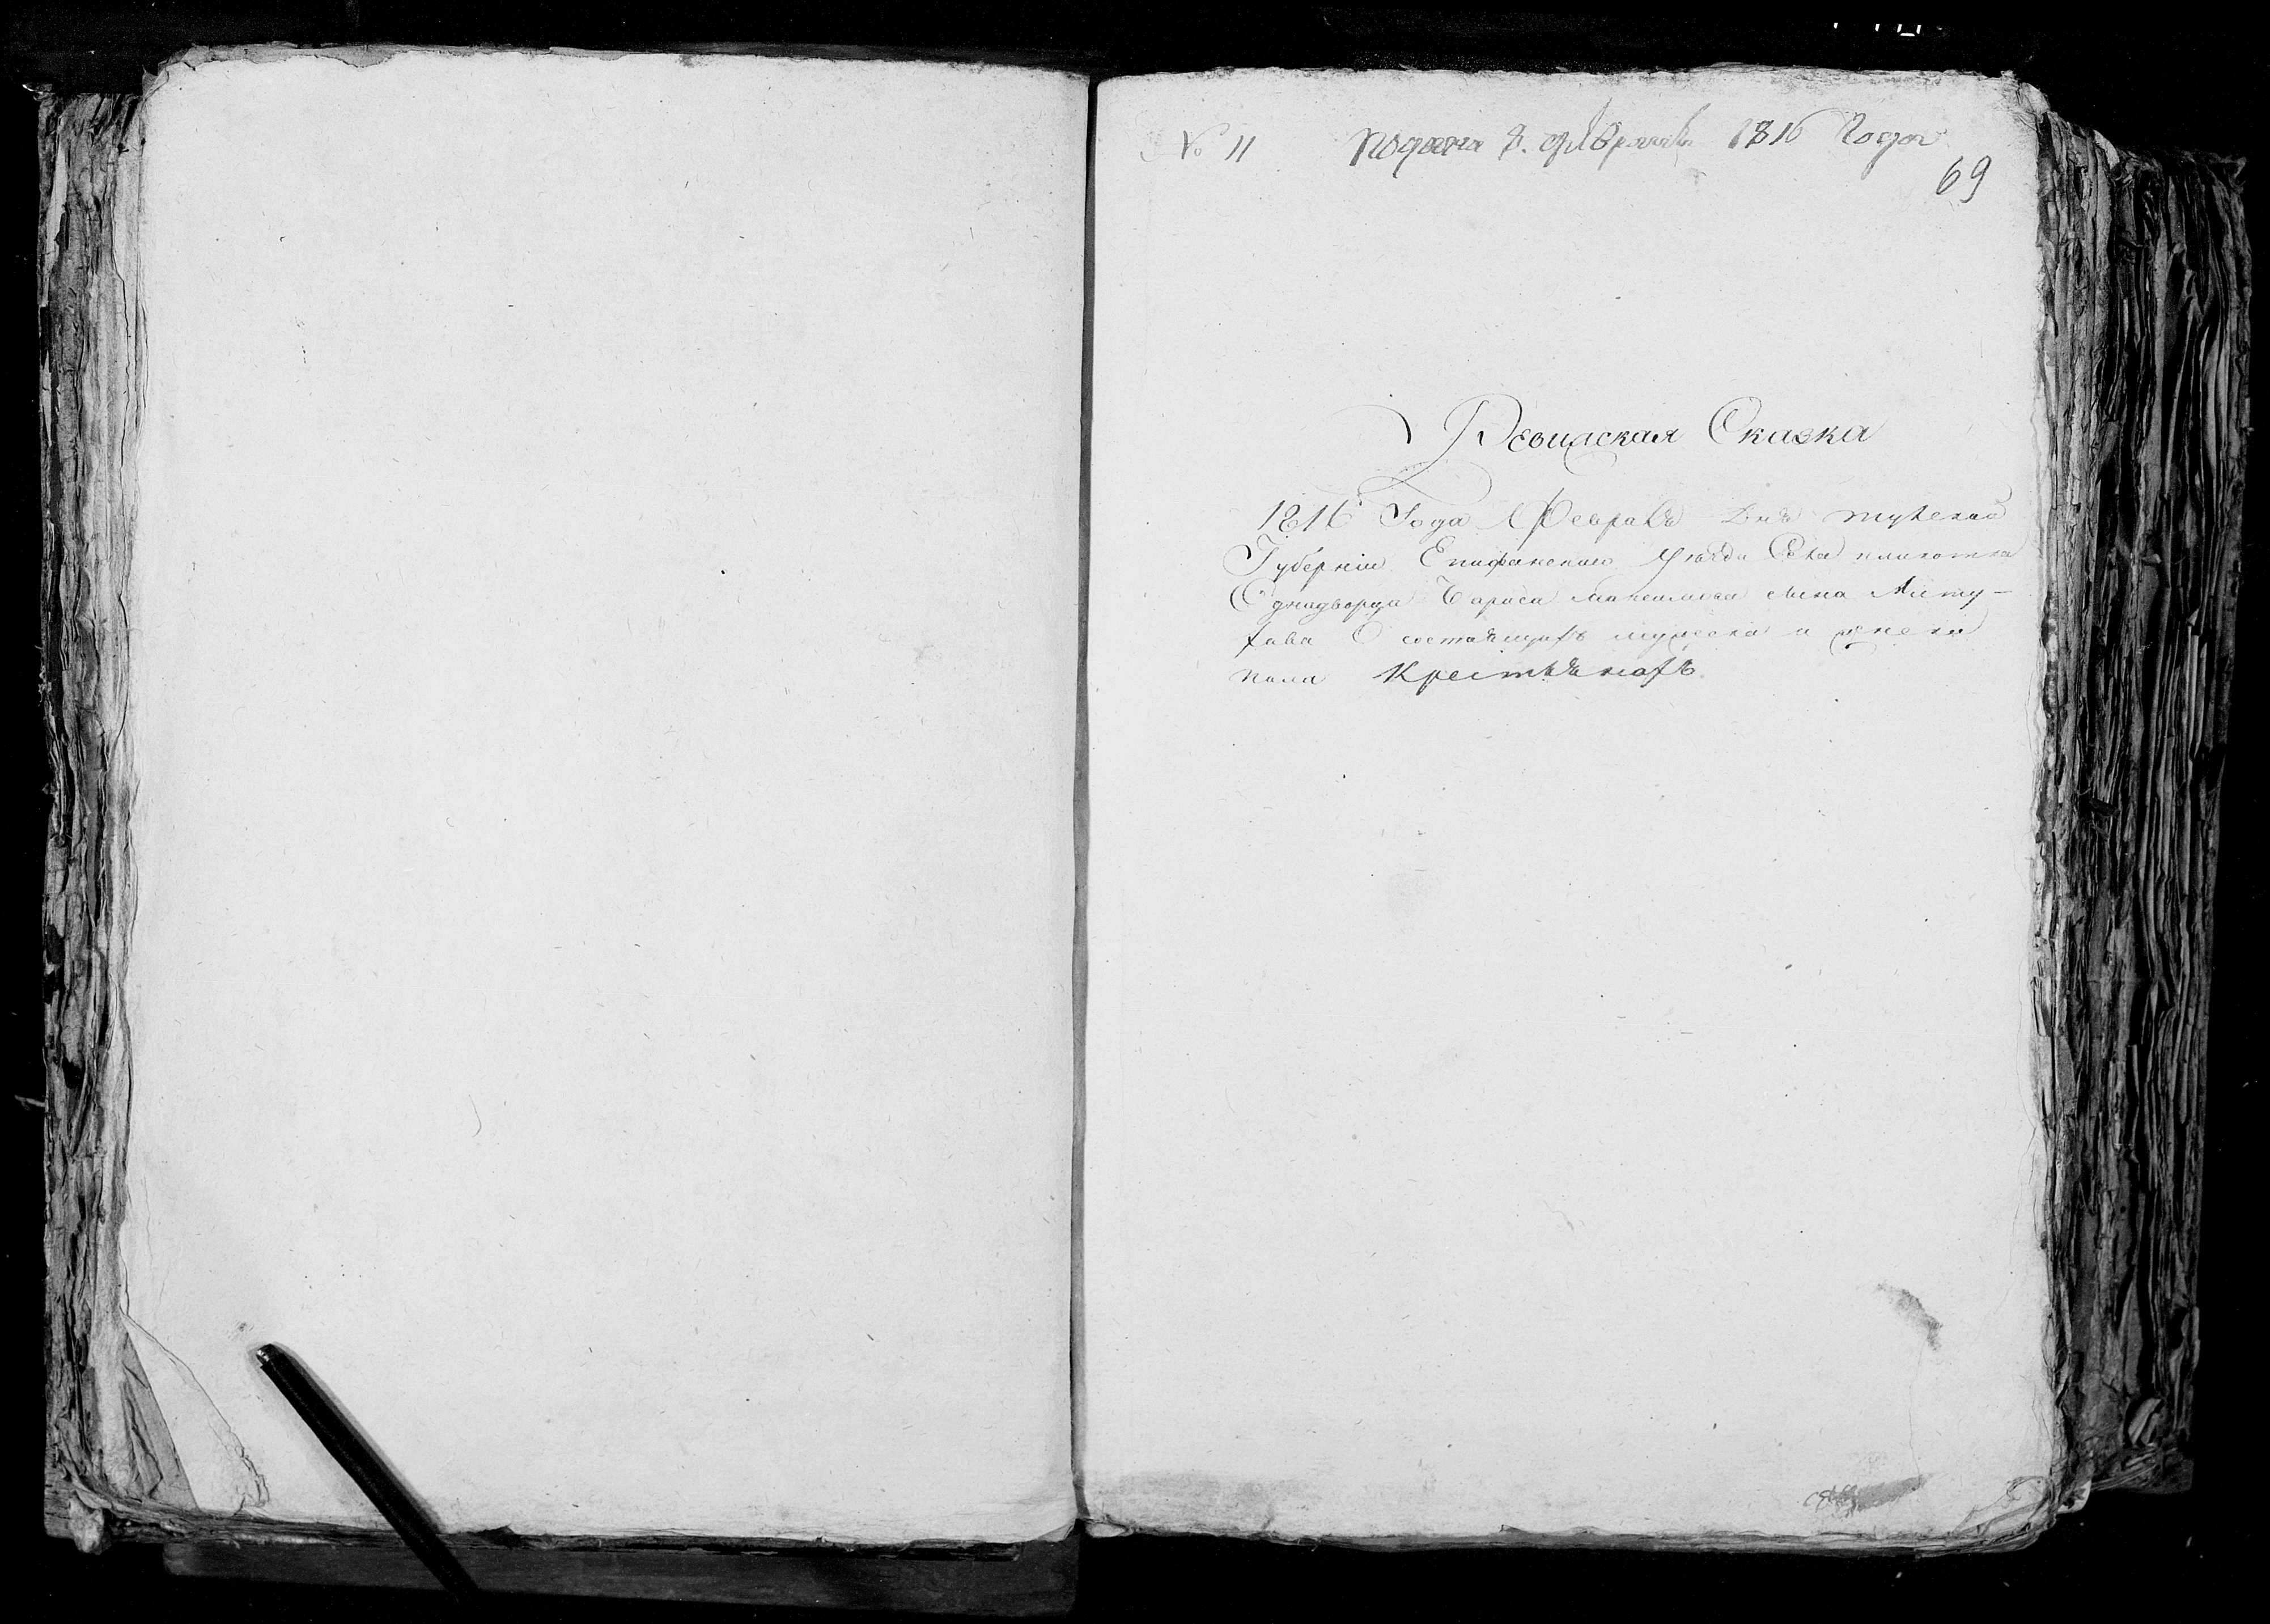 № 11 Подана 8. февраля 1816 Года
69
Ревиская Сказка
1816 Года Февраля Дня тулской
Губернии Епифанскаго уезда Села
Однадворца Бориса сына Ляту-
хава О состаящихъ мужеска и женска
пола Крестьянахъ.